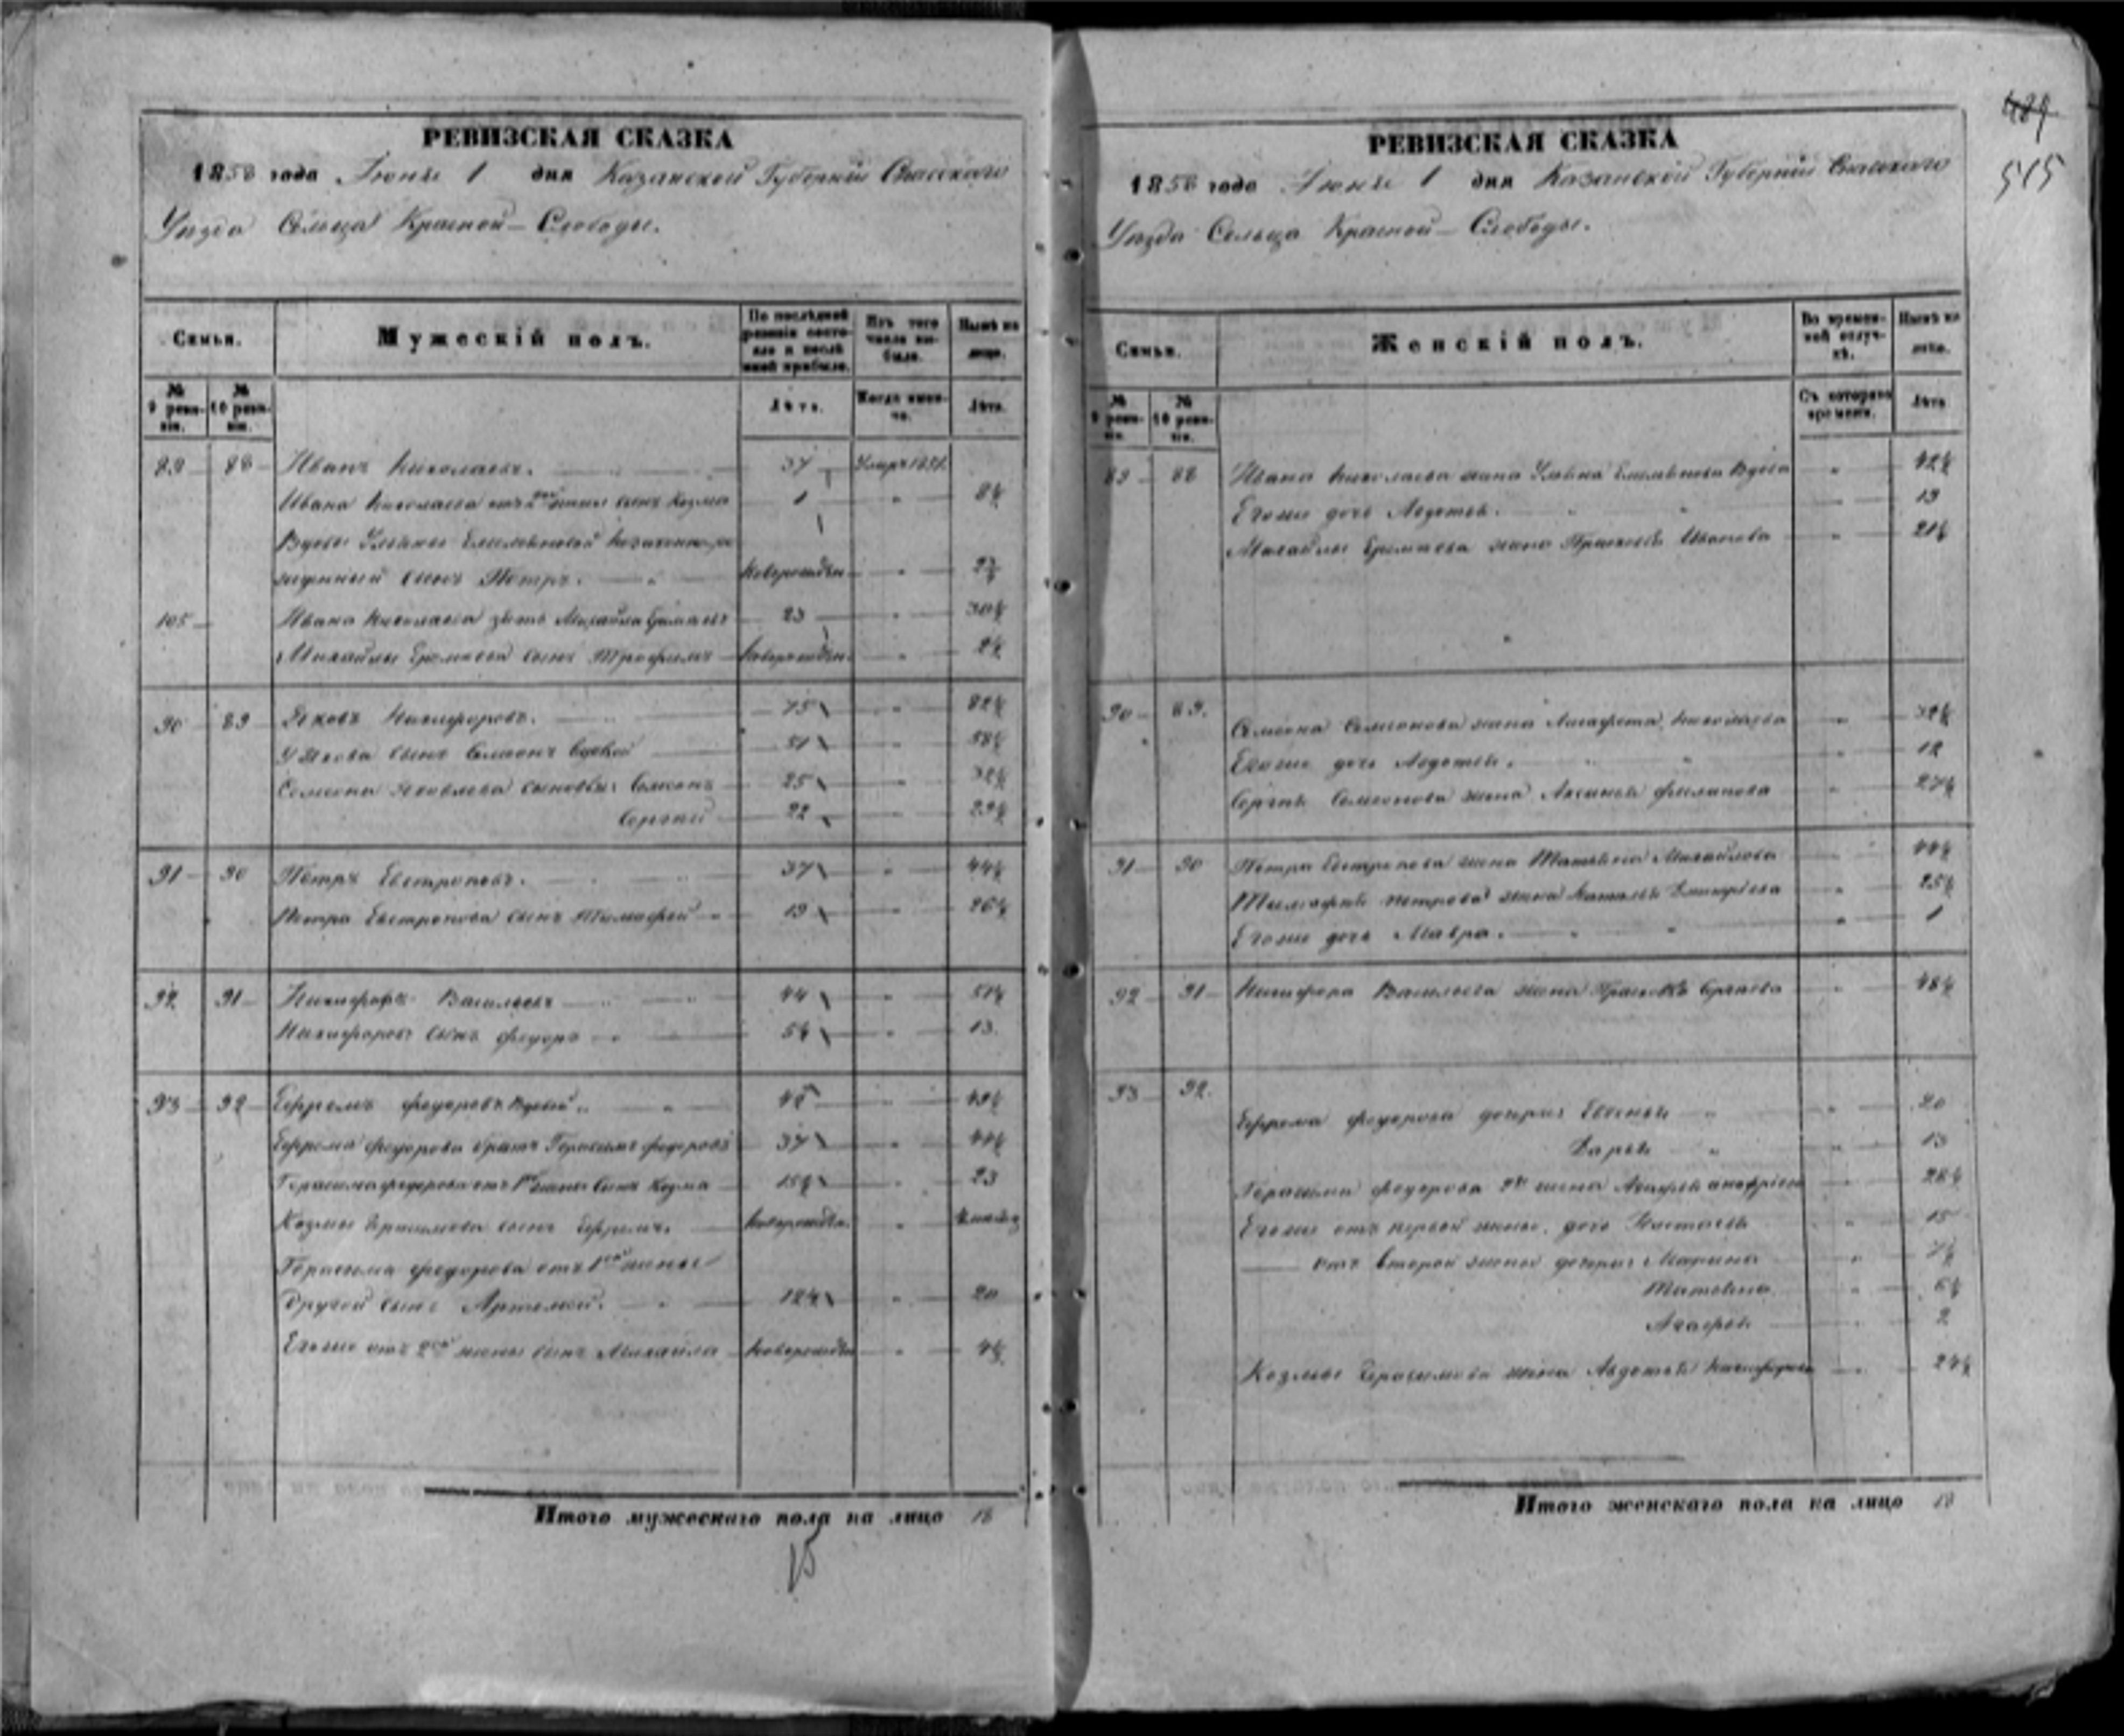 РЕВИЗСКАЯ СКАЗКА
1858 года Июня 1 дня Казанской Губернии Спасскаго
Уезда Сельца Красной-Слободы.
Семьи.
Мужескій полъ.
По последней ревизіи состояло и после оной прибыло.
Изъ того числа выбыло.
Ныне на лицо.
№ 9 ревизіи.
№ 10 ревизіи.
Летъ.
Когда именно.
Лета.
89 88 Иванъ Николаевъ. 37 Умеръ 1851
Ивана Николаева отъ 2ой жены сынъ Козма 1 " 8½
Вдовы Ульяны Емельяновой
сынъ Петръ. " новорожден. "
105 Ивана Николаева зять Михайла 23 " 30½
Михайлы сынъ Трофимъ новорожден. " 2½
90 89 Яковъ Никифоровъ. 75 " 82½
Якова сынъ Семионъ вдовой 51 " 58½
Семиона Яковлева сыновья: Семионъ 25 " 32½
Сергей 22 29½
91 90 Петръ Евстроповъ. 37 " 44½
Петра Евстропова сынъ Тимофей 19 " 26½
92 91 Никифоръ Васильевъ 44 " 51½
Никифоровъ сынъ Федоръ 5½ " 13
93 92 Ефремъ Федоровъ вдовый 42 " 49½
Ефрема Федорова братъ Герасимъ Федоровъ 37 " 44½
Герасима Федорова отъ 1ой жены сынъ Козма 15½ " 23
Козмы Герасимова сынъ Ефремъ. новорожден. "
Герасима Федорова отъ 1ой жены
другой сынъ Артемий. 12½ " 20
Егоже отъ 2ой жены сынъ Михайла новорожден "
Итого мужескаго пола на лицо 18
15
489
515
РЕВИЗСКАЯ СКАЗКА
1858 года Июня 1 дня Казанской Губерніи Спасскаго
Уезда Сельца Красной-Слободы.
Семьи.
Женскій полъ.
Во временной отлучке.
Ныне на лицо.
№ 9 ревизіи.
№ 10 ревизіи.
Съ котораго времени.
Лета
89 88 Ивана Николаева жена Ульяна Емельянова Вдова " 42½
Егоже дочь Авдотья. " 19
Михайлы жена Прасковья Иванова " 21½
90 89. Семиона Семионова жена Николаева " 32½
Егоже дочь Авдотья. " 12
Сергея Семионова жена Аксинья Филипова " 27½
91 90 Петра Евстропова жена Татьяна Михайлова 44½
Тимофея Петрова жена Наталья Дмитріева " 25½
Егоже дочь Мавра. " 1
92 91 Никифора Васильева жена Прасковья Сергеева " 48½
93 92. Ефрема Федорова дочери: Евгенья " 20
Дарья " 13
Герасима Федорова 2я жена Агафья 28½
Егоже отъ первой жены дочь Настасья " 15
отъ второй жены дочери: Марина " 7½
Татьяна " 6½
Агафья 2
Козмы Герасимова жена Авдотья 24½
Итого женскаго пола на лицо 18